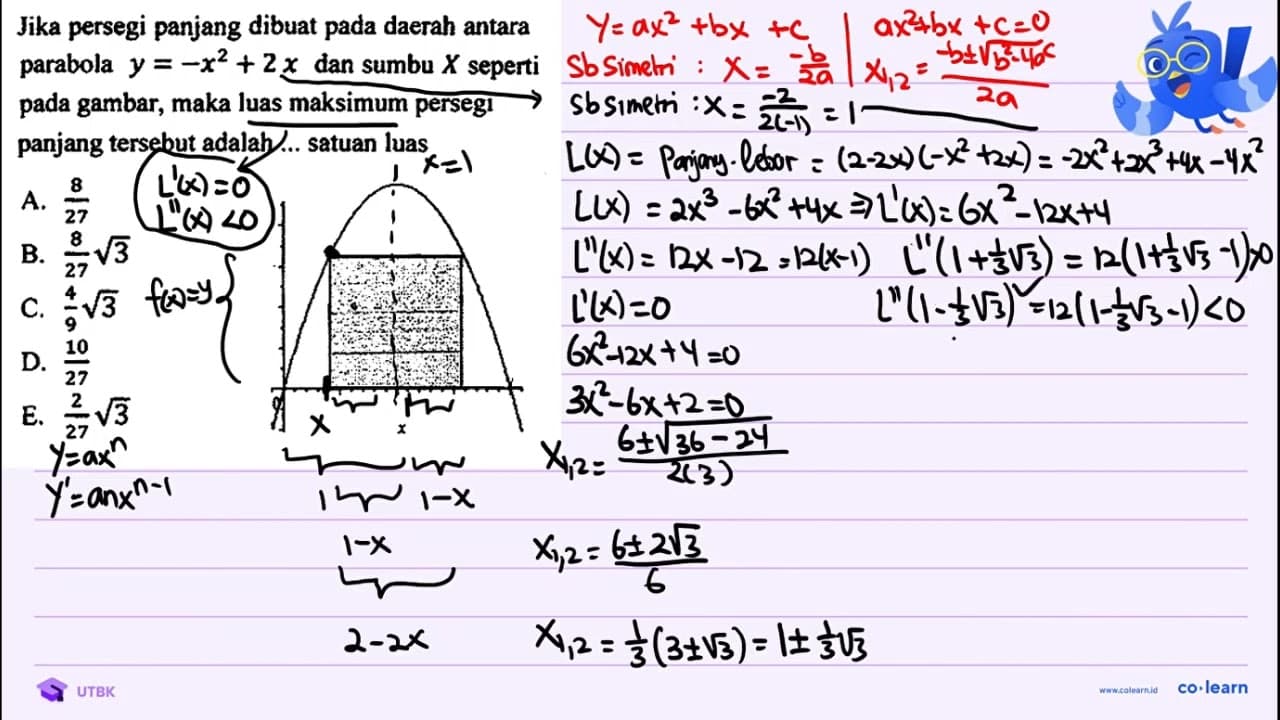 Jika persegi panjang dibuat pada daerah antara
parabola y = −x² + 2x dan sumbu X seperti
pada gambar, maka luas maksimum persegi
panjang tersebut adalah ... satuan luas
A. 8/27
B. 8/27 √3
C. 4/9 √3
D. 10/27
E. 2/27 √3
L'(x)=0
L''(x) <0
f(x)=y
y=axⁿ
y'=anxⁿ⁻¹
x=1
x
x
1
1-x
1-x
2-2x
y=ax² +bx +c
Sb Simetri : x = -b/2a
ax²+bx +c=0
x₁,₂ = -b±√b²-4ac / 2a
Sb Simetri : x = -2/2(-1) = 1
L(x) = Panjang . lebar = (2-2x)(-x² +2x) = -2x²+2x³+4x-4x²
L(x) = 2x³ -6x² +4x ⇒ L'(x)= 6x² -12x+4
L''(x) = 12x -12 = 12(x-1) L''(1+⅓√3) = 12(1+⅓√3 -1)>0
L'(x) =0 L''(1-⅓√3) =12(1-⅓√3 -1)<0
6x²-12x+4=0
3x²-6x+2=0
x₁,₂= 6±√36-24 / 2(3)
x₁,₂ = 6±2√3 / 6
x₁,₂ = ⅓(3±√3) = 1± ⅓√3
UTBK
www.colearn.id
co·learn